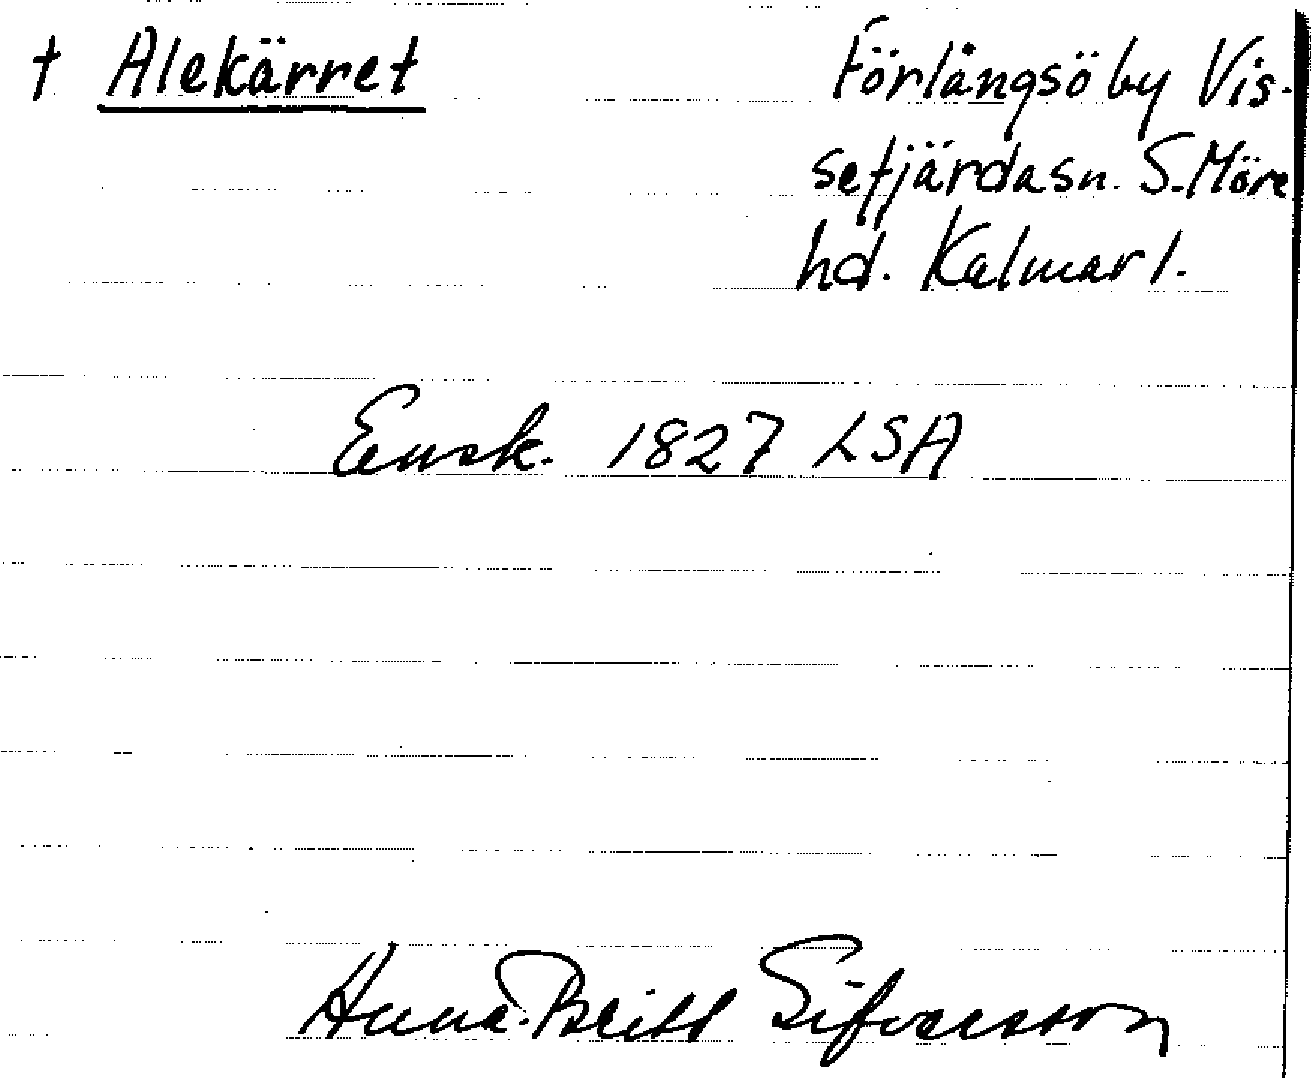 † Alekärret Förlångsö by Vis-
sefjärda sn. S. Möre
hd. Kalmar l.
Ensk. 1827 LSA
Anna-Britt Sifversson